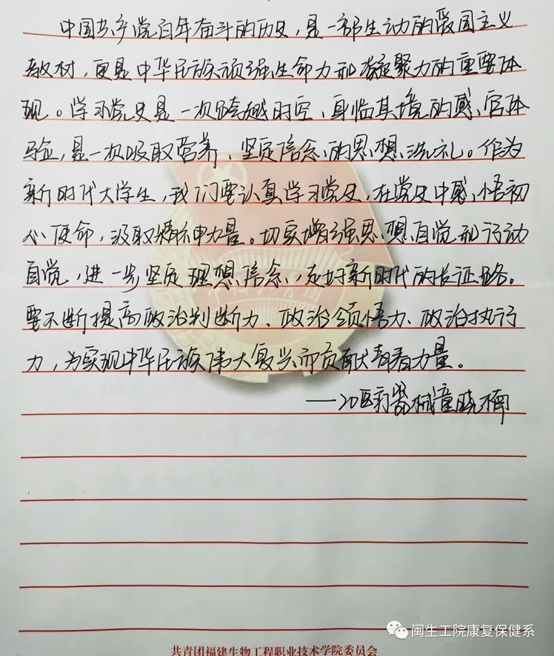 中国共产党百年奋斗的历史，是一部生动的爱国主义
教材，更是中华民族顽强生命力和凝聚力的重要体
现。学习党史是一次跨越时空、身临其境的感官体
验，是一次吸取营养、坚定信念的思想洗礼。作为
新时代大学生，我们要认真学习党史，在党史中感悟初
心使命，汲取精神力量。切实增强思想自觉和行动
自觉，进一步坚定理想信念，走好新时代的长征路。
要不断提高政治判断力、政治领悟力、政治执行
力，为实现中华民族伟大复兴而贡献青春力量。
——20医疗器械童晓楠
闽生工院康复保健系
共青团福建生物工程职业技术学院委员会